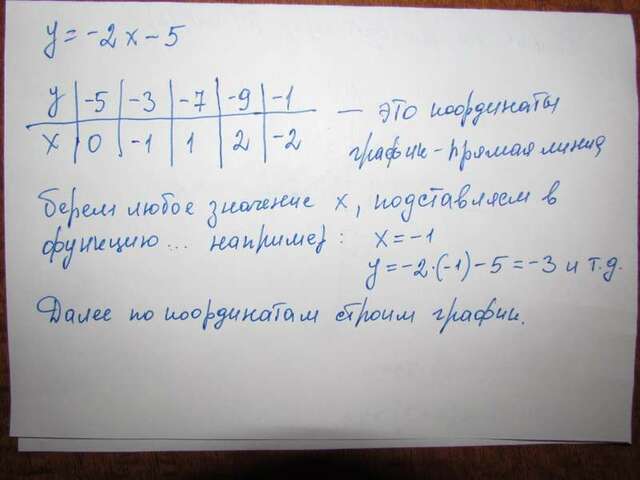 y = -2x - 5
y | -5 | -3 | -7 | -9 | -1
x | 0 | -1 | 1 | 2 | -2
— это координаты
график - прямая линия
берем любое значение x, подставляем в
функцию... например: x = -1
y = -2·(-1) - 5 = -3 и т.д.
Далее по координатам строим график.